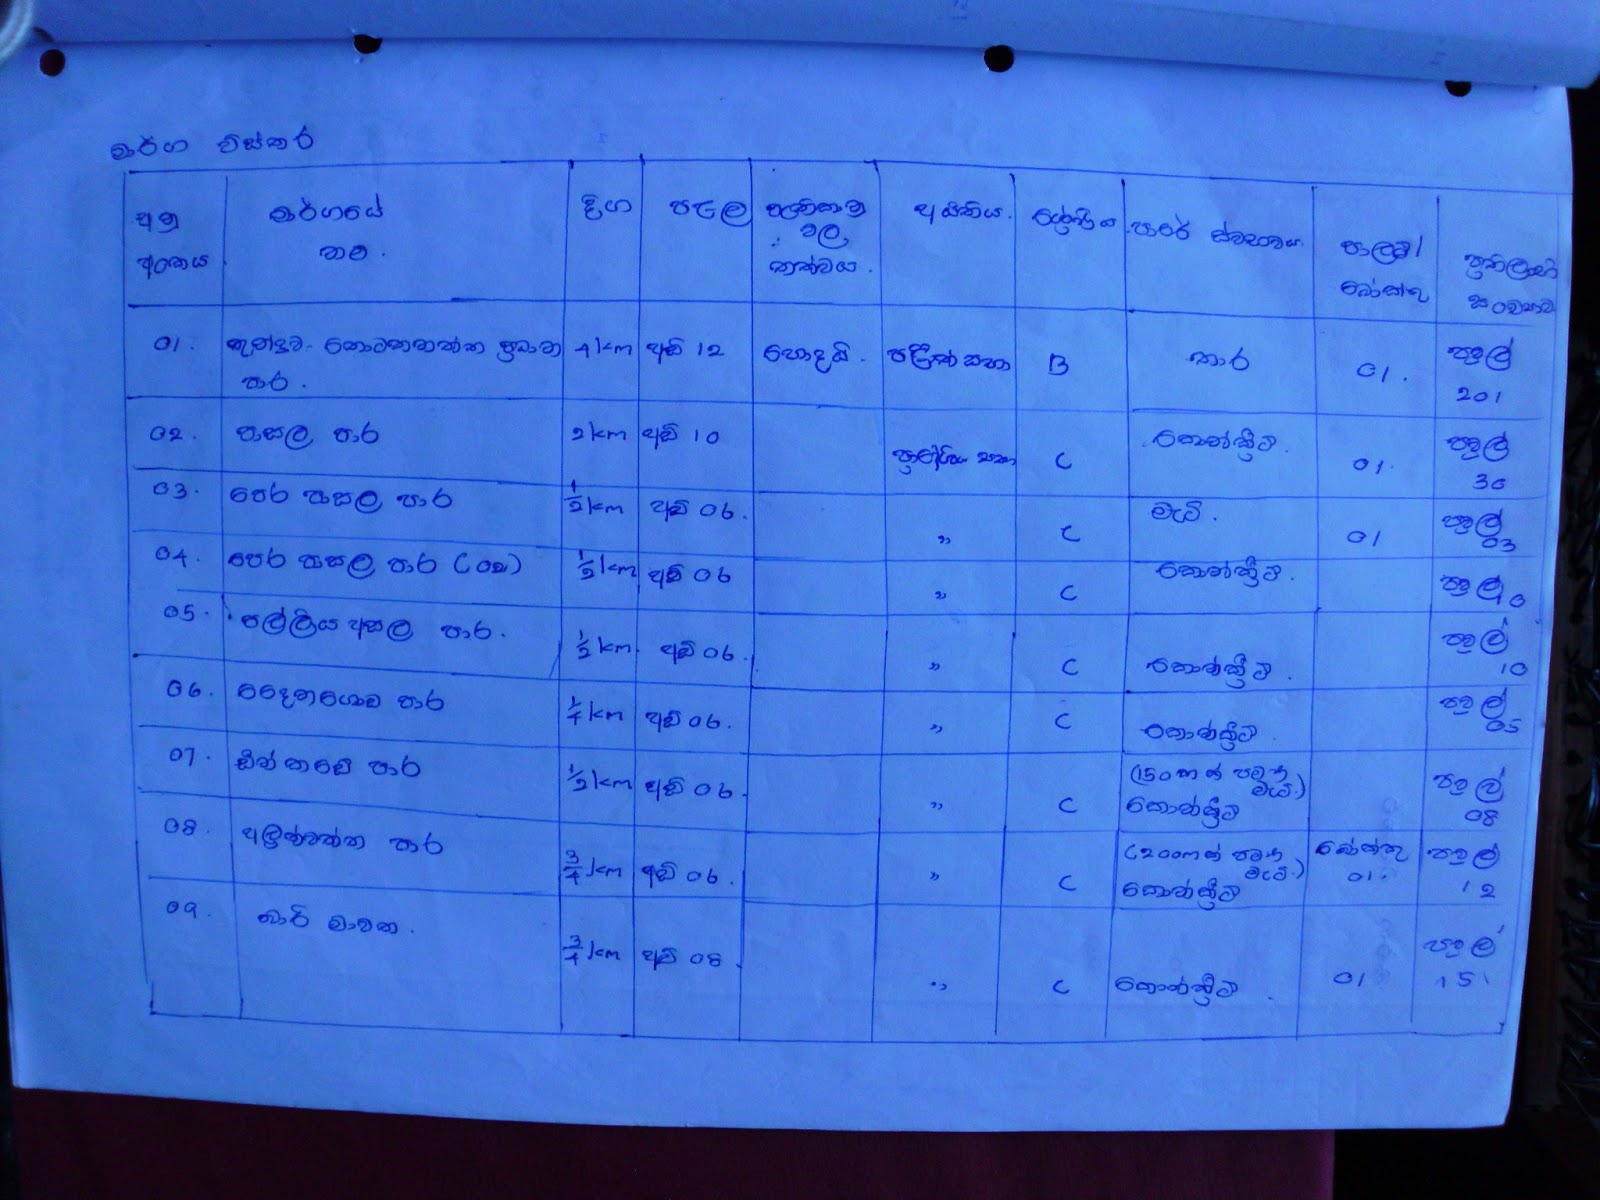 මාර්ග විස්තර
අනු අංකය මාර්ගයේ නම. දිග පළල තත්වය. අයිතිය. ශ්‍රේණිය පාරේ ස්වභාවය. පාලම්/ බෝක්කු ප්‍රතිලාභී සංඛ්‍යාව
01. ප්‍රධාන පාර. 4 km අඩි 12 හොදයි. පළාත් සභා B තාර 01. පවුල් 201
02. පාසල පාර 2 km අඩි 10 ප්‍රාදේශීය සභා C කොන්ක්‍රීට්. 01. පවුල් 30
03. පෙර පාසල පාර 1/2 km අඩි 06. " C මැටි. 01 පවුල් 03
04. පෙර පාසල පාර (02) 1/2 km අඩි 06 " C කොන්ක්‍රීට්. පවුල් 10
05. පල්ලිය අසල පාර. 1/2 km අඩි 06. " C කොන්ක්‍රීට්. පවුල් 10
06. පාර 1/4 km අඩි 06. " C කොන්ක්‍රීට්. පවුල් 05
07. පාර 1/2 km අඩි 06. " C (150m ක් පමණ මැටි.) කොන්ක්‍රීට් පවුල් 08
08. අලුත්වත්ත පාර 3/4 km අඩි 06. " C (200m ක් පමණ මැටි.) කොන්ක්‍රීට් බෝක්කු 01. පවුල් 12
09. මාවත. 3/4 km අඩි 08. " C කොන්ක්‍රීට්. 01 පවුල් 151